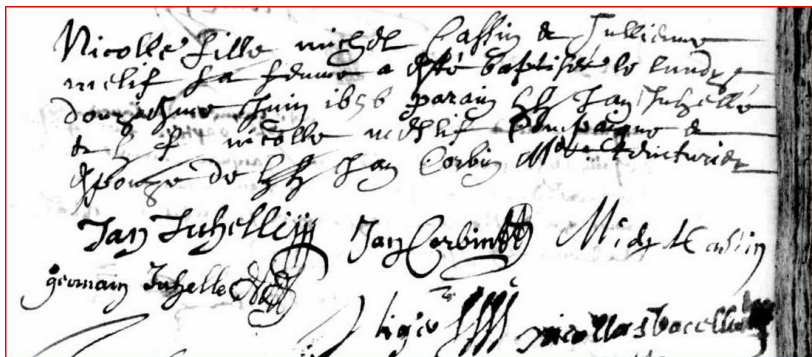 Nicolle fille michel Cassin & Jullienne
melif sa femme a esté baptisée le lundy
douziesme Juin 1656 parain hh Jan Juhelle
& h f nicolle meslif Compaigne &
Espouze de hh Jan Corbin Md tinturier
Jan Juhelle Jan Corbin Michel Cassin
germain Juhelle
nicollas bacellu